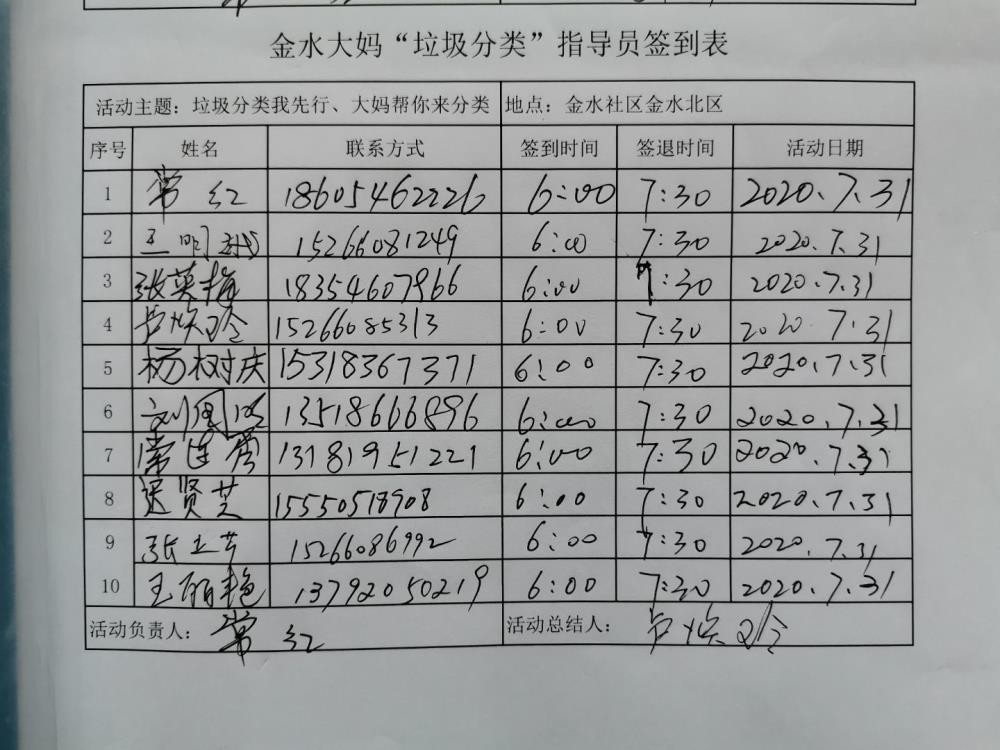 金水大妈“垃圾分类”指导员签到表
活动主题：垃圾分类我先行、大妈帮你来分类 地点：金水社区金水北区
序号 姓名 联系方式 签到时间 签退时间 活动日期
1 常红 18605462226 6:00 7:30 2020.7.31
2 王明 15266081249 6:00 7:30 2020.7.31
3 张英梅 18354607966 6:00 7:30 2020.7.31
4 卢焕玲 15266085313 6:00 7:30 2020.7.31
5 杨树庆 15318367371 6:00 7:30 2020.7.31
6 刘国 13518666896 6:00 7:30 2020.7.31
7 常连秀 13181951221 6:00 7:30 2020.7.31
8 贤芝 15550518908 6:00 7:30 2020.7.31
9 张玉芳 15266086992 6:00 7:30 2020.7.31
10 王丽艳 13792050219 6:00 7:30 2020.7.31
活动负责人：常红 活动总结人：卢焕玲